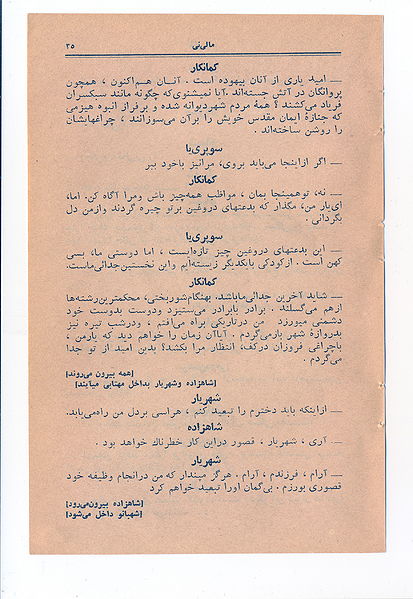 ۳۵ مالی‌نی
کمانکار
— امید یاری از آنان بیهوده است . آنان هم‌اکنون ، همچون
پروانگان در آتش جسته‌اند .آیا نمیشنوی‌که چگونه مانند سبکسران
فریاد می‌کشند ؟ همهٔ مردم شهردیوانه شده و برفراز انبوه هیزمی
که جنازهٔ ایمان مقدس خویش را برآن می‌سوزانند ، چراغهایشان
را روشن ساخته‌اند .
سوپری‌یا
— اگر ازاینجا می‌باید بروی، مرانیز باخود ببر
کمانکار
— نه، توهمینجا بمان ، مواظب همه‌چیز باش ومرا آگاه کن. اما،
ای‌یار من، مگذار که بدعتهای دروغین برتو چیره گردند وازمن دل
بگردانی .
سوپری‌یا
— این بدعتهای دروغین چیز تازه‌ایست ، اما دوستی ما، بسی
کهن است . ازکودکی بایکدیگر زیسته‌ایم واین نخستین‌جدائی‌ماست.
کمانکار
— شاید آخرین جدائی‌ماباشد. بهنگام‌شوربختی، محکمترین‌رشته‌ها
ازهم می‌گسلند . برادر بابرادر می‌ستیزد ودوست بدوست خود
دشمنی میورزد من درتاریکی براه می‌افتم ، ودرشب تیره نیز
بدروازهٔ شهر بازمی‌گردم . آیاآن زمان را خواهم دید که یارمن ،
باچراغی فروزان درکف، انتظار مرا بکشد؟ بدین امید از تو جدا
می‌گردم .
[همه بیرون می‌روند]
[شاهزاده وشهریار بداخل مهتابی میایند]
شهریار
— ازاینکه باید دخترم را تبعید کنم ، هراسی بردل من راه‌می‌یابد.
شاهزاده
— آری ، شهریار ، قصور دراین کار خطرناك خواهد بود .
شهریار
— آرام ، فرزندم ، آرام . هرگز میندار که من درانجام وظیفه خود
قصوری بورزم . بی‌گمان اورا تبعید خواهم کرد
[شاهزاده بیرون‌می‌رود]
[شهبانو داخل می‌شود]